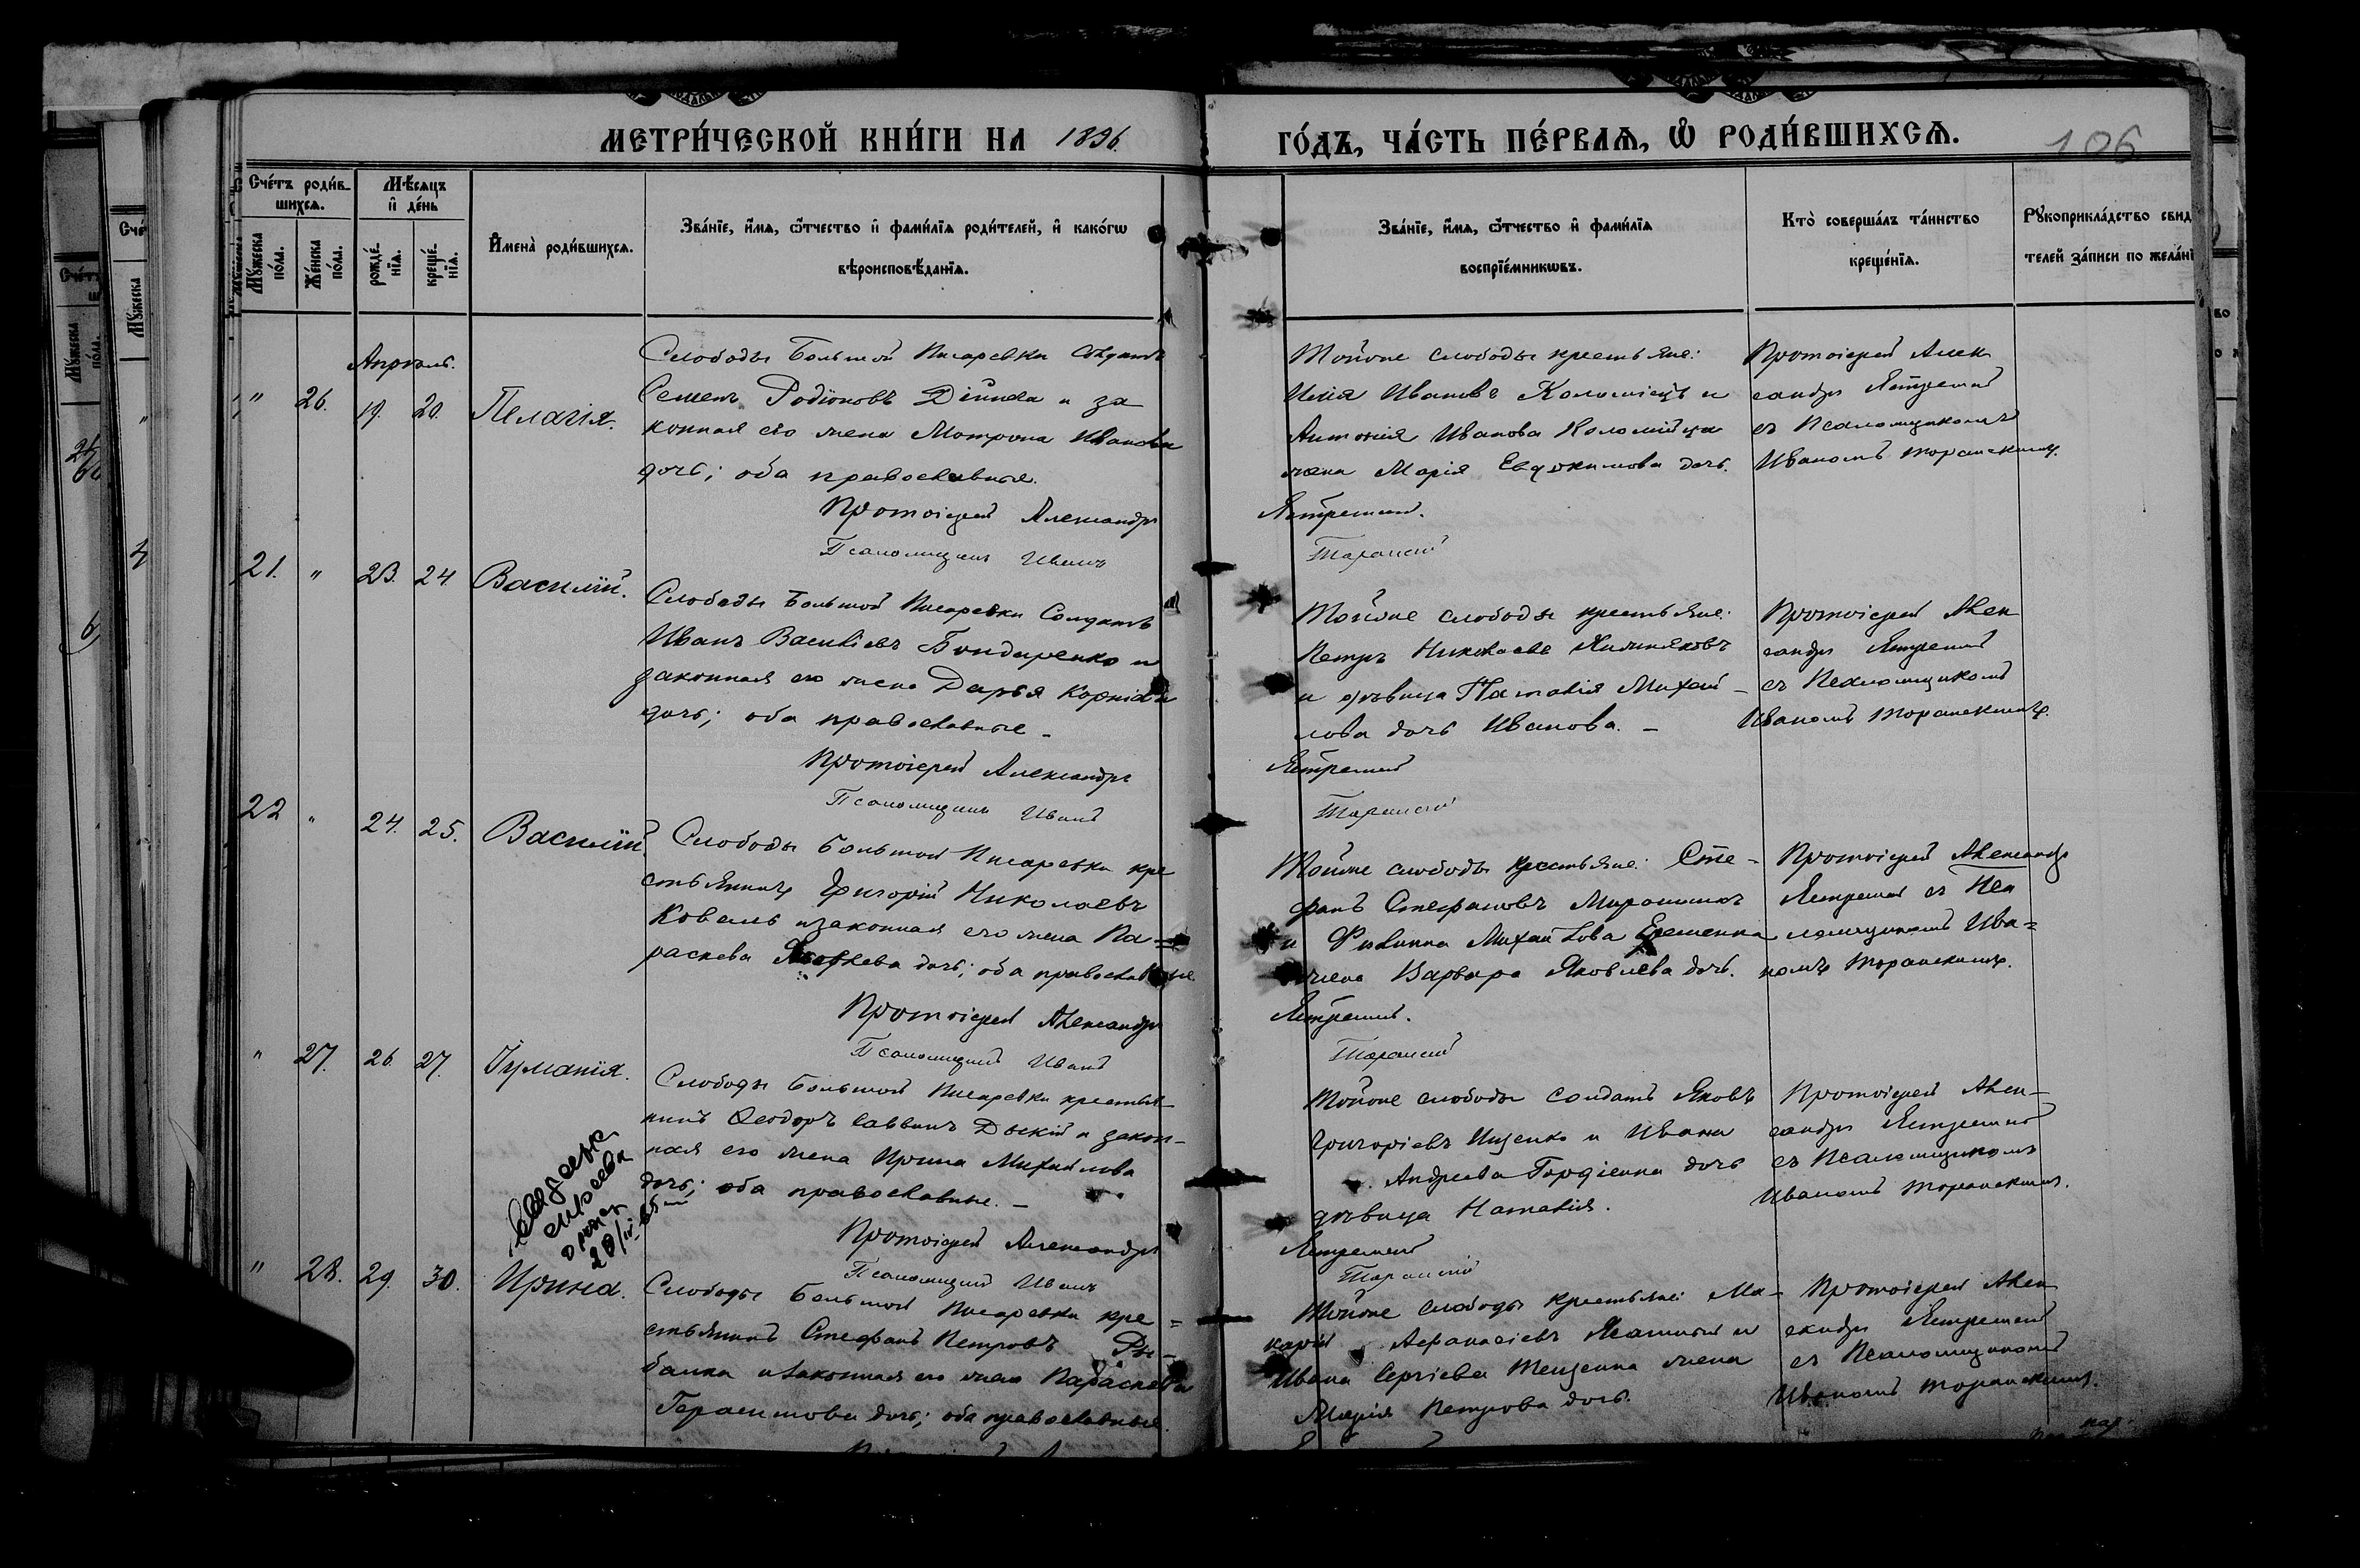 МЕТРИ́ЧЕСКОЙ КНИ́ГИ НА 1896.
ГО́ДЪ, ЧА́СТЬ ПЕ́РВАЯ, Ѡ҆ РОДИ́ВШИХСЯ.
106
Сче́тъ роди́в-
шихся.
Мѣ́сяцъ
и҆ де́нь
И҆мена̀ роди́вшихся.
Зва́нїе, и҆́мя, ѻ҆́тчество и҆ фами́лїя роди́телей, и҆ како́гѡ
вѣроисповѣ́данїя.
Зва́нїе, и҆́мя, ѻ҆́тчество и҆ фами́лїя
воспрїе́мникѡвъ.
Кто̀ соверша́лъ та́инство
креще́нїя.
Рꙋкоприкла́дство свид
телей за́писи по жела́нї
Мꙋ́жеска
по́ла.
Же́нска
по́ла.
рожде́-
нїя.
креще́-
нїя.
Апрѣль.
" 26. 19. 20. Пелагія.
Слободы Большой Писаревки Солдатъ
Семенъ Родіоновъ и за
конная его жена Матрона Иванова
дочь; оба православные.
Протоіерей Александръ
Псаломщикъ Иванъ
Тойже слободы крестьяне:
Илія Ивановъ Коломіецъ и
Антонія Иванова Коломійца
жена Марія Евдокимова дочь.
Ястремскій.
Торанскій
Протоіерей Алек
сандръ Ястремскій
съ Псаломщикомъ
Иваномъ Торанскимъ.
21. " 23. 24. Василій.
Слободы Большой Писаревки Солдатъ
Иванъ Василіевъ Бондаренко и
законная его жена Дарья Корніева
дочь; оба православные –
Протоіерей Александръ
Псаломщикъ Иванъ
Тойже слободы крестьяне:
Петръ Николаевъ
и дѣвица Наталія Михай –
лова дочь Иванова. –
Ястремскій
Торанскій
Протоіерей Алек
сандръ Ястремскій
съ Псаломщикомъ
Иваномъ Торанскимъ.
22 " 24. 25. Василій.
Слободы Большой Писаревки кре
стьянинъ Григорій Николаевъ
Коваль и законная его жена Па =
раскева дочь; оба православные.
Протоіерей Александръ
Псаломщикъ Иванъ
Тойже слободы крестьяне: Сте –
фанъ Стефановъ Мирошник
и Филиппа Михайлова Еременка
жена Варвара Яковлева дочь.
Ястремскій.
Торанскій
Протоіерей Александръ
Ястремскій съ Пса
ломщикомъ Ива =
номъ Торанскимъ.
" 27. 26. 27. Гуманія.
Слободы Большой Писаревки крестья–
нинъ Ѳеодоръ Саввинъ Дыкій и закон–
ная его жена Ирина Михайлова
дочь; оба православные. –
Протоіерей Александръ
Псаломщикъ Иванъ
Тойже слободы солдатъ Яковъ
Григоріевъ Ищенко и Ивана
Андреева Гордіенка дочь
дѣвица Наталія.
Ястремскій
Торанскій
Протоіерей Алек–
сандръ Ястремскій
съ Псаломщикомъ
Иваномъ Торанскимъ.
" 28. 29. 30. Ирина.
Слободы Большой Писаревки кре =
стьянинъ Стефанъ Петровъ Ры–
балка и законная его жена Параскева
Герасимова дочь; оба православные.
Тойже слободы крестьяне: Ма–
карій Аѳанасіевъ и
Ивана Сергіева жена
Марія Петрова дочь.
Протоіерей Алек
сандръ Ястремскій
съ Псаломщикомъ
Иваномъ Торанскимъ.